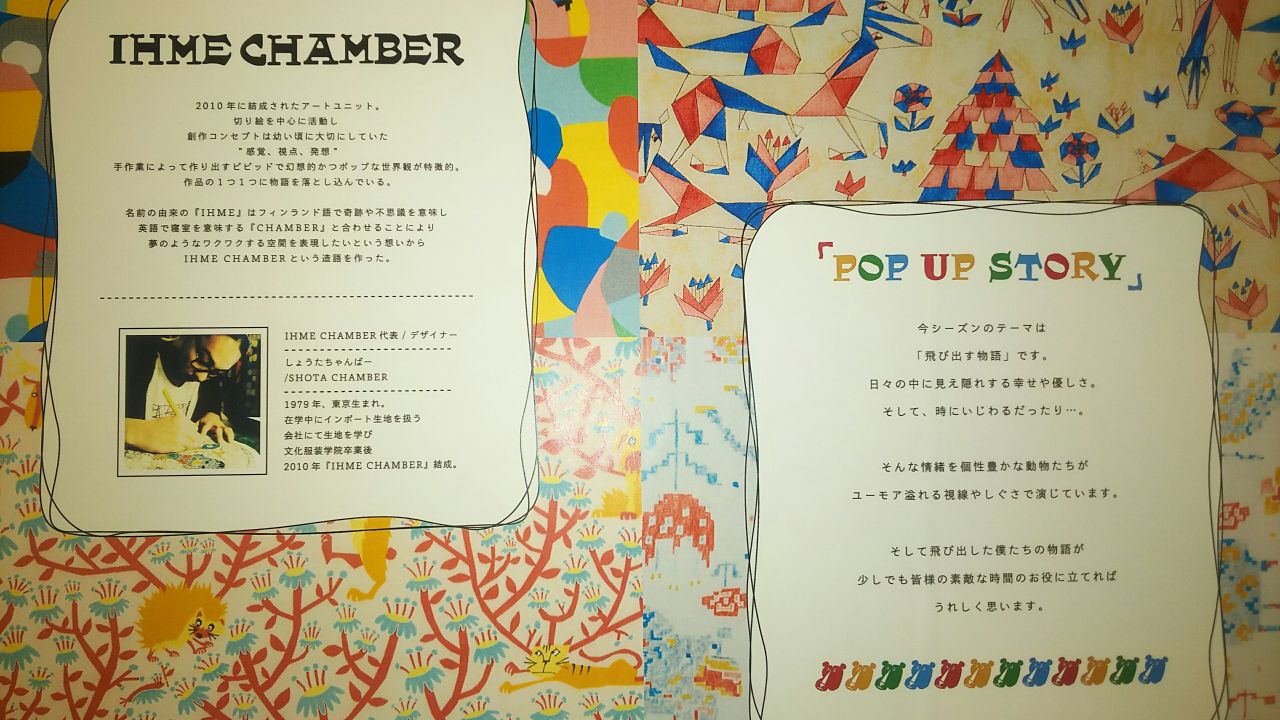 IHME CHAMBER
2010年に結成されたアートユニット。
切り絵を中心に活動し
創作コンセプトは幼い頃に大切にしていた
"感覚、視点、発想"
手作業によって作り出すビビッドで幻想的かつポップな世界観が特徴的。
作品の1つ1つに物語を落とし込んでいる。
名前の由来の『IHME』はフィンランド語で奇跡や不思議を意味し
英語で寝室を意味する『CHAMBER』と合わせることにより
夢のようなワクワクする空間を表現したいという想いから
IHME CHAMBERという造語を作った。
IHME CHAMBER代表 / デザイナー
しょうたちゃんばー
/SHOTA CHAMBER
1979年、東京生まれ。
在学中にインポート生地を扱う
会社にて生地を学び
文化服装学院卒業後
2010年『IHME CHAMBER』結成。
「POP UP STORY」
今シーズンのテーマは
「飛び出す物語」です。
日々の中に見え隠れする幸せや優しさ。
そして、時にいじわるだったり…。
そんな情緒を個性豊かな動物たちが
ユーモア溢れる視線やしぐさで演じています。
そして飛び出した僕たちの物語が
少しでも皆様の素敵な時間のお役に立てれば
うれしく思います。